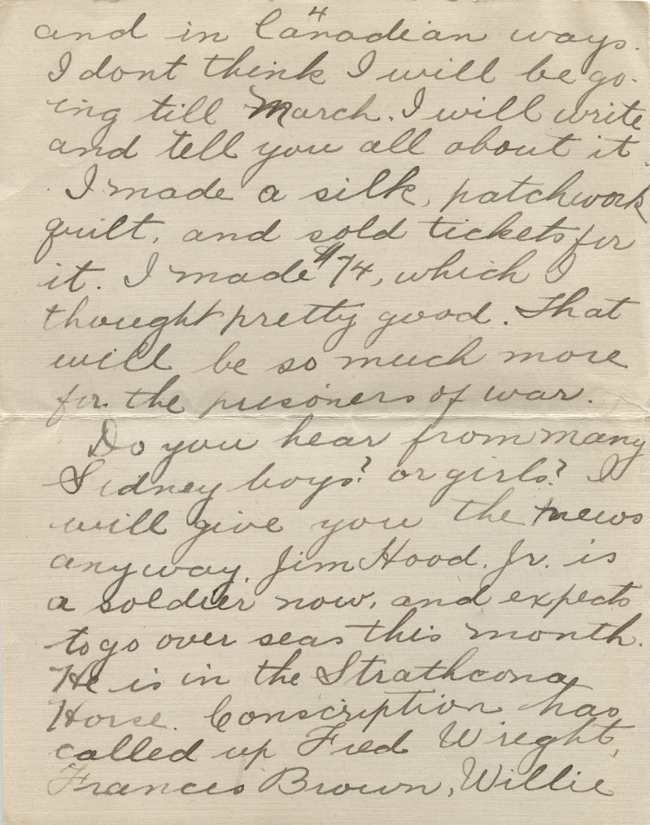 4
and in Canadian ways.
I dont think I will be go-
ing till March. I will write
and tell you all about it.
I made a silk, patchwork
quilt, and sold tickets for
it. I made $74, which I
thought pretty good. That
will be so much more
for the prisoners of war.
Do you hear from many
Sidney boys? or girls? I
will give you the news
anyway. Jim Hood. Jr. is
a soldier now, and expects
to go over seas this month.
He is in the Strathcona
Horse. Conscription has
called up Fred Wright,
Francis Brown, Willie